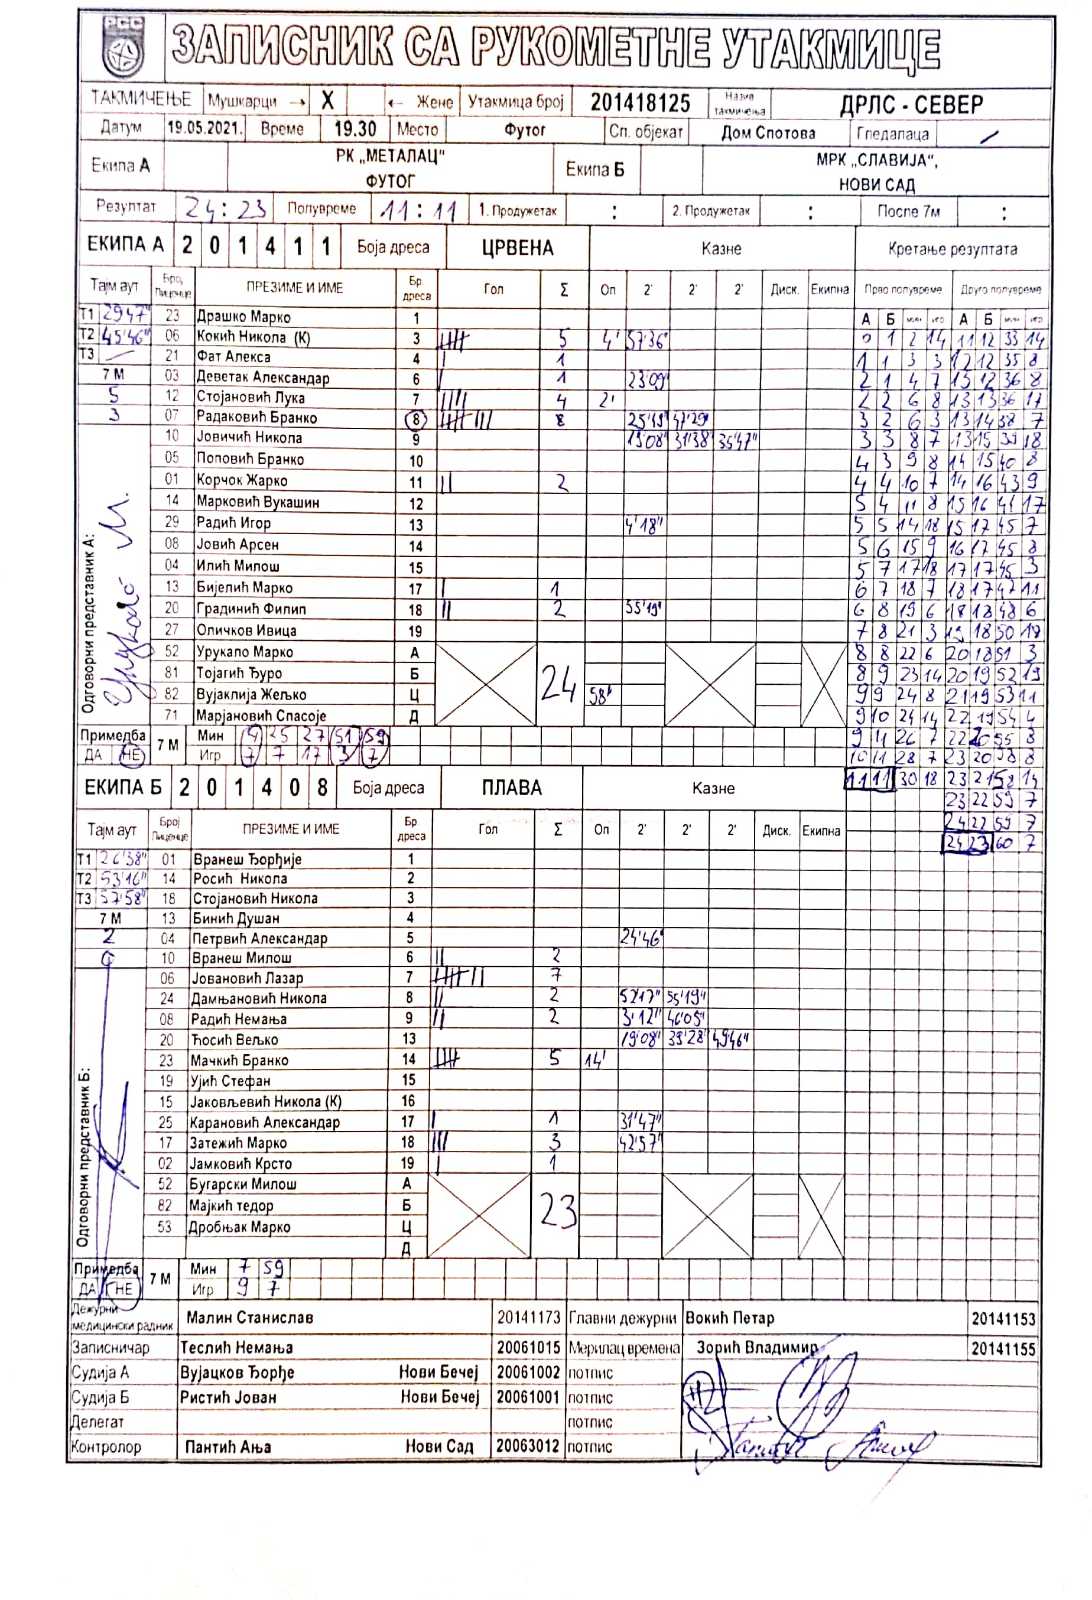 РСС
ЗАПИСНИК СА РУКОМЕТНЕ УТАКМИЦЕ
ТАКМИЧЕЊЕ Мушкарци → X ← Жене Утакмица број 201418125 Назив такмичења ДРЛС - СЕВЕР
Датум 19.05.2021. Време 19.30 Место Футог Сп. објекат Дом Спотова Гледалаца /
Екипа А РК „МЕТАЛАЦ" ФУТОГ Екипа Б МРК „СЛАВИЈА", НОВИ САД
Резултат 24:23 Полувреме 11:11 1. Продужетак : 2. Продужетак : После 7м :
ЕКИПА А 2 0 1 4 1 1 Боја дреса ЦРВЕНА Казне Кретање резултата
Тајм аут Број Лиценце ПРЕЗИМЕ И ИМЕ Бр. дреса Гол Σ Оп 2' 2' 2' Диск. Екипна Прво полувреме Друго полувреме
Т1 29'47" 23 Драшко Марко 1 А Б мин игр А Б мин игр
Т2 45'46" 06 Кокић Никола (К) 3 5 4' 57'36" 0 1 2 14 11 12 33 14
Т3 — 21 Фат Алекса 4 1 1 1 3 3 12 12 35 8
7 М 03 Деветак Александар 6 1 23'09" 2 1 4 7 13 12 36 8
5 12 Стојановић Лука 7 4 2' 2 2 6 8 13 13 36 17
3 07 Радаковић Бранко 8 8 25'49" 47'29" 3 2 6 3 13 14 38 7
10 Јовичић Никола 9 19'08" 31'38" 35'47" 3 3 8 7 13 15 39 18
05 Поповић Бранко 10 4 3 9 8 14 15 40 8
01 Корчок Жарко 11 2 4 4 10 7 14 16 43 9
14 Марковић Вукашин 12 5 4 11 8 15 16 44 17
29 Радић Игор 13 4'18" 5 5 14 18 15 17 45 7
08 Јовић Арсен 14 5 6 15 9 16 17 45 8
04 Илић Милош 15 5 7 17 18 17 17 45 3
13 Бијелић Марко 17 1 6 7 18 7 18 17 47 11
20 Градинић Филип 18 2 55'19" 6 8 19 6 18 18 48 6
27 Оличков Ивица 19 7 8 21 3 19 18 50 17
52 Урукало Марко А 8 8 22 6 20 18 51 3
81 Тојагић Ђуро Б 24 8 9 23 14 20 19 52 19
82 Вујаклија Жељко Ц 58' 9 9 24 8 21 19 53 11
71 Марјановић Спасоје Д 9 10 24 14 22 19 54 4
Одговорни представник А:
Примедба 7 М Мин 9 25 27 51 59 9 11 26 7 22 20 55 8
ДА НЕ Игр 7 7 17 3 7 10 11 28 7 23 20 58 8
ЕКИПА Б 2 0 1 4 0 8 Боја дреса ПЛАВА Казне 11 11 30 18 23 21 58 14
23 22 59 7
Тајм аут Број Лиценце ПРЕЗИМЕ И ИМЕ Бр. дреса Гол Σ Оп 2' 2' 2' Диск. Екипна 24 22 59 7
24 23 60 7
Т1 26'38" 01 Вранеш Ђорђије 1
Т2 53'16" 14 Росић Никола 2
Т3 57'58" 18 Стојановић Никола 3
7 М 13 Бинић Душан 4
2 04 Петрвић Александар 5 24'46"
0 10 Вранеш Милош 6 2
06 Јовановић Лазар 7 7
24 Дамњановић Никола 8 2 52'17" 55'19"
08 Радић Немања 9 2 3'12" 46'05"
20 Ћосић Вељко 13 19'08" 39'28" 49'46"
23 Мачкић Бранко 14 5 14'
19 Ујић Стефан 15
15 Јаковљевић Никола (К) 16
25 Карановић Александар 17 1 31'47"
17 Затежић Марко 18 3 42'57"
02 Јамковић Крсто 19 1
52 Бугарски Милош А
82 Мајкић тедор Б 23
53 Дробњак Марко Ц
Д
Одговорни представник Б:
Примедба 7 М Мин 7 59
ДА НЕ Игр 9 7
Дежурни медицински радник Малин Станислав 20141173 Главни дежурни Вокић Петар 20141153
Записничар Теслић Немања 20061015 Мерилац времена Зорић Владимир 20141155
Судија А Вујацков Ђорђе Нови Бечеј 20061002 потпис
Судија Б Ристић Јован Нови Бечеј 20061001 потпис
Делегат потпис
Контролор Пантић Ања Нови Сад 20063012 потпис